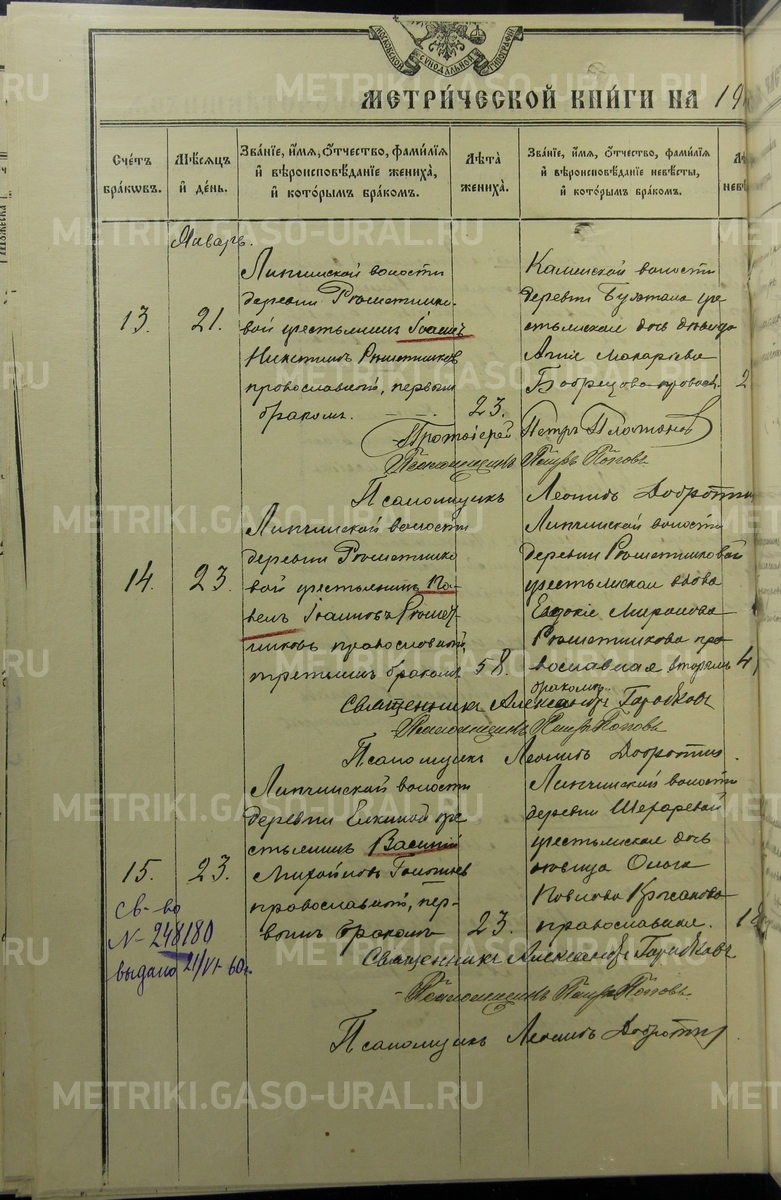 МОСКОВСКОЙ СΥНОДАЛЬНОЙ ТИПОГРАФІИ
МЕТРИ́ЧЕСКОЙ КНИ́ГИ НА 19
Сче́тъ бра́кωвъ.
Мѣ́сяцъ и҆ де́нь.
Зва́нїе, и҆́мя, ѻ҆́тчество, фами́лїя
и҆ вѣроисповѣ́данїе жениха̀,
и҆ кото́рымъ бра́комъ.
Лѣ́та жениха̀.
Зва́нїе, и҆́мя, ѻ҆́тчество, фами́лїя
и҆ вѣроисповѣ́данїе невѣ́сты,
и҆ кото́рымъ бра́комъ.
Январь.
13.
21.
Липчинской волости
деревни Рѣшетнико-
вой крестьянинъ Іоаннъ
Никитинъ Рѣшетников
православный, первым
бракомъ.
23.
Каменской волости
деревни кре
стьянская дочь девица
Анна Макарьева
Бобрецова правосл.
2
Протоіерей Петръ Платонов
Псаломщикъ Петръ Поповъ
Псаломщикъ Леонидъ
14.
23.
Липчинской волости
деревни Рѣшетнико
вой крестьянинъ Па-
велъ Іоанновъ Рѣшет
никовъ православный,
третьимъ бракомъ
58.
Липчинской волости
деревни Рѣшетниковой
крестьянская вдова
Евдокія Миронова
Рѣшетникова пра
вославная вторымъ
бракомъ.
4
Священникъ Александръ
Псаломщикъ Петръ Поповъ
Псаломщикъ Леонидъ
15.
23.
Липчинской волости
деревни Елкиной кре
стьянинъ Василій
Михайловъ
православный, пер-
вымъ бракомъ
23.
Липчинской волости
деревни
крестьянская дочь
девица Ольга
Павлова
православная.
18
Св-во
N- 248180
выдано 21/VI-60г.
Священникъ Александръ
Псаломщикъ Петръ Поповъ
Псаломщикъ Леонидъ
METRIKI.GASO-URAL.RU